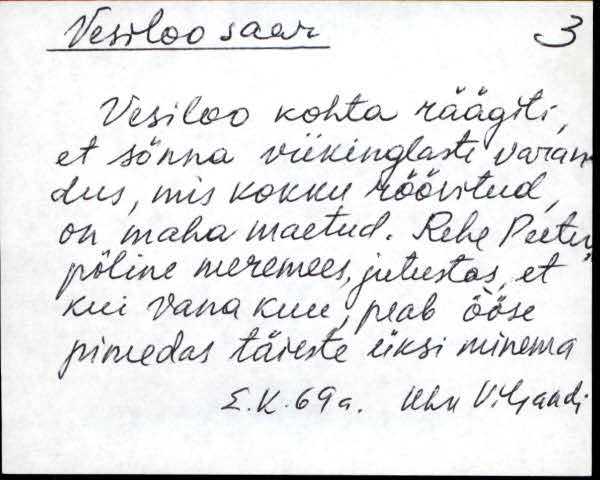 Vesiloo saar 3
Vesiloo kohta räägiti,
et sõnna viikinglaste varan
dus, mis kokku röövitud,
on maha maetud. Rehe Peeter,
põline meremees, jutustas, et
kui vana kuu, peab ööse
pimedas täieste üksi minema
E.K. 69a. Viljandi